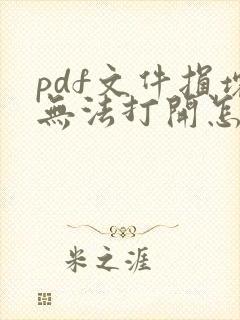 pdf文件損壞
無法打開怎
米之涯